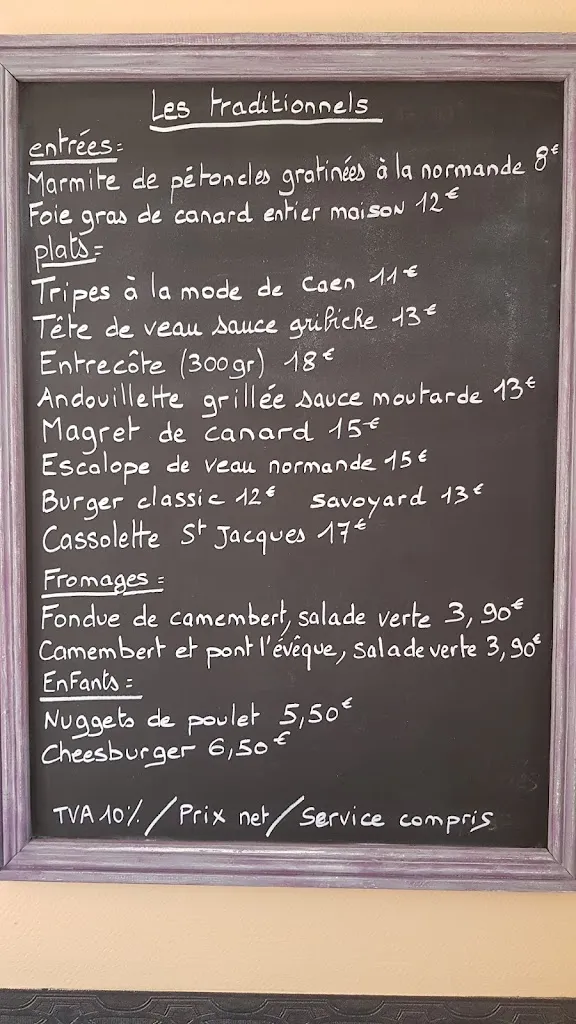 Les traditionnels
entrées:
Marmite de pétoncles gratinées à la normande 8€
Foie gras de canard entier maison 12€
plats:
Tripes à la mode de Caen 11€
Tête de veau sauce gribiche 13€
Entrecôte (300gr) 18€
Andouillette grillée sauce moutarde 13€
Magret de canard 15€
Escalope de veau normande 15€
Burger classic 12€ savoyard 13€
Cassolette St Jacques 17€
Fromages:
Fondue de camembert, salade verte 3,90€
Camembert et pont l'évêque, salade verte 3,90€
Enfants:
Nuggets de poulet 5,50€
Cheesburger 6,50€
TVA 10%/Prix net/Service compris